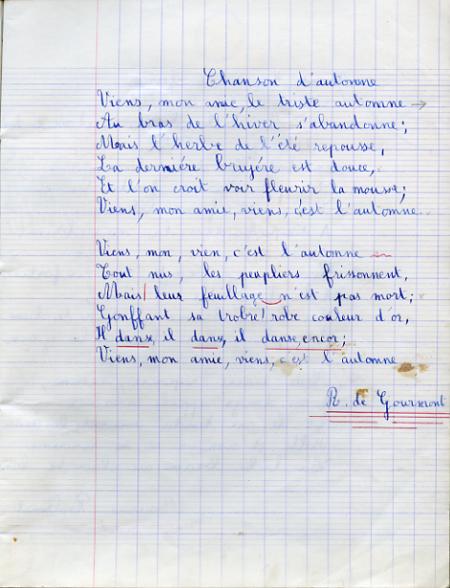 Chanson d'automne
Viens, mon amie, le triste automne →
Au bras de l'hiver s'abandonne;
Mais l'herbe de l'été repousse,
La dernière bruyère est douce,
Et l'on croit voir fleurir la mousse;
Viens, mon amie, viens, c'est l'automne.
Viens, mon, vien, c'est l'automne
Tout nus, les peupliers frissonnent,
Mais leur feuillage n'est pas mort;
Gonffant sa trobre robe couleur d'or,
Il danse, il danse, il danse, encor;
Viens, mon amie, viens, c'est l'automne
R. de Gourmont